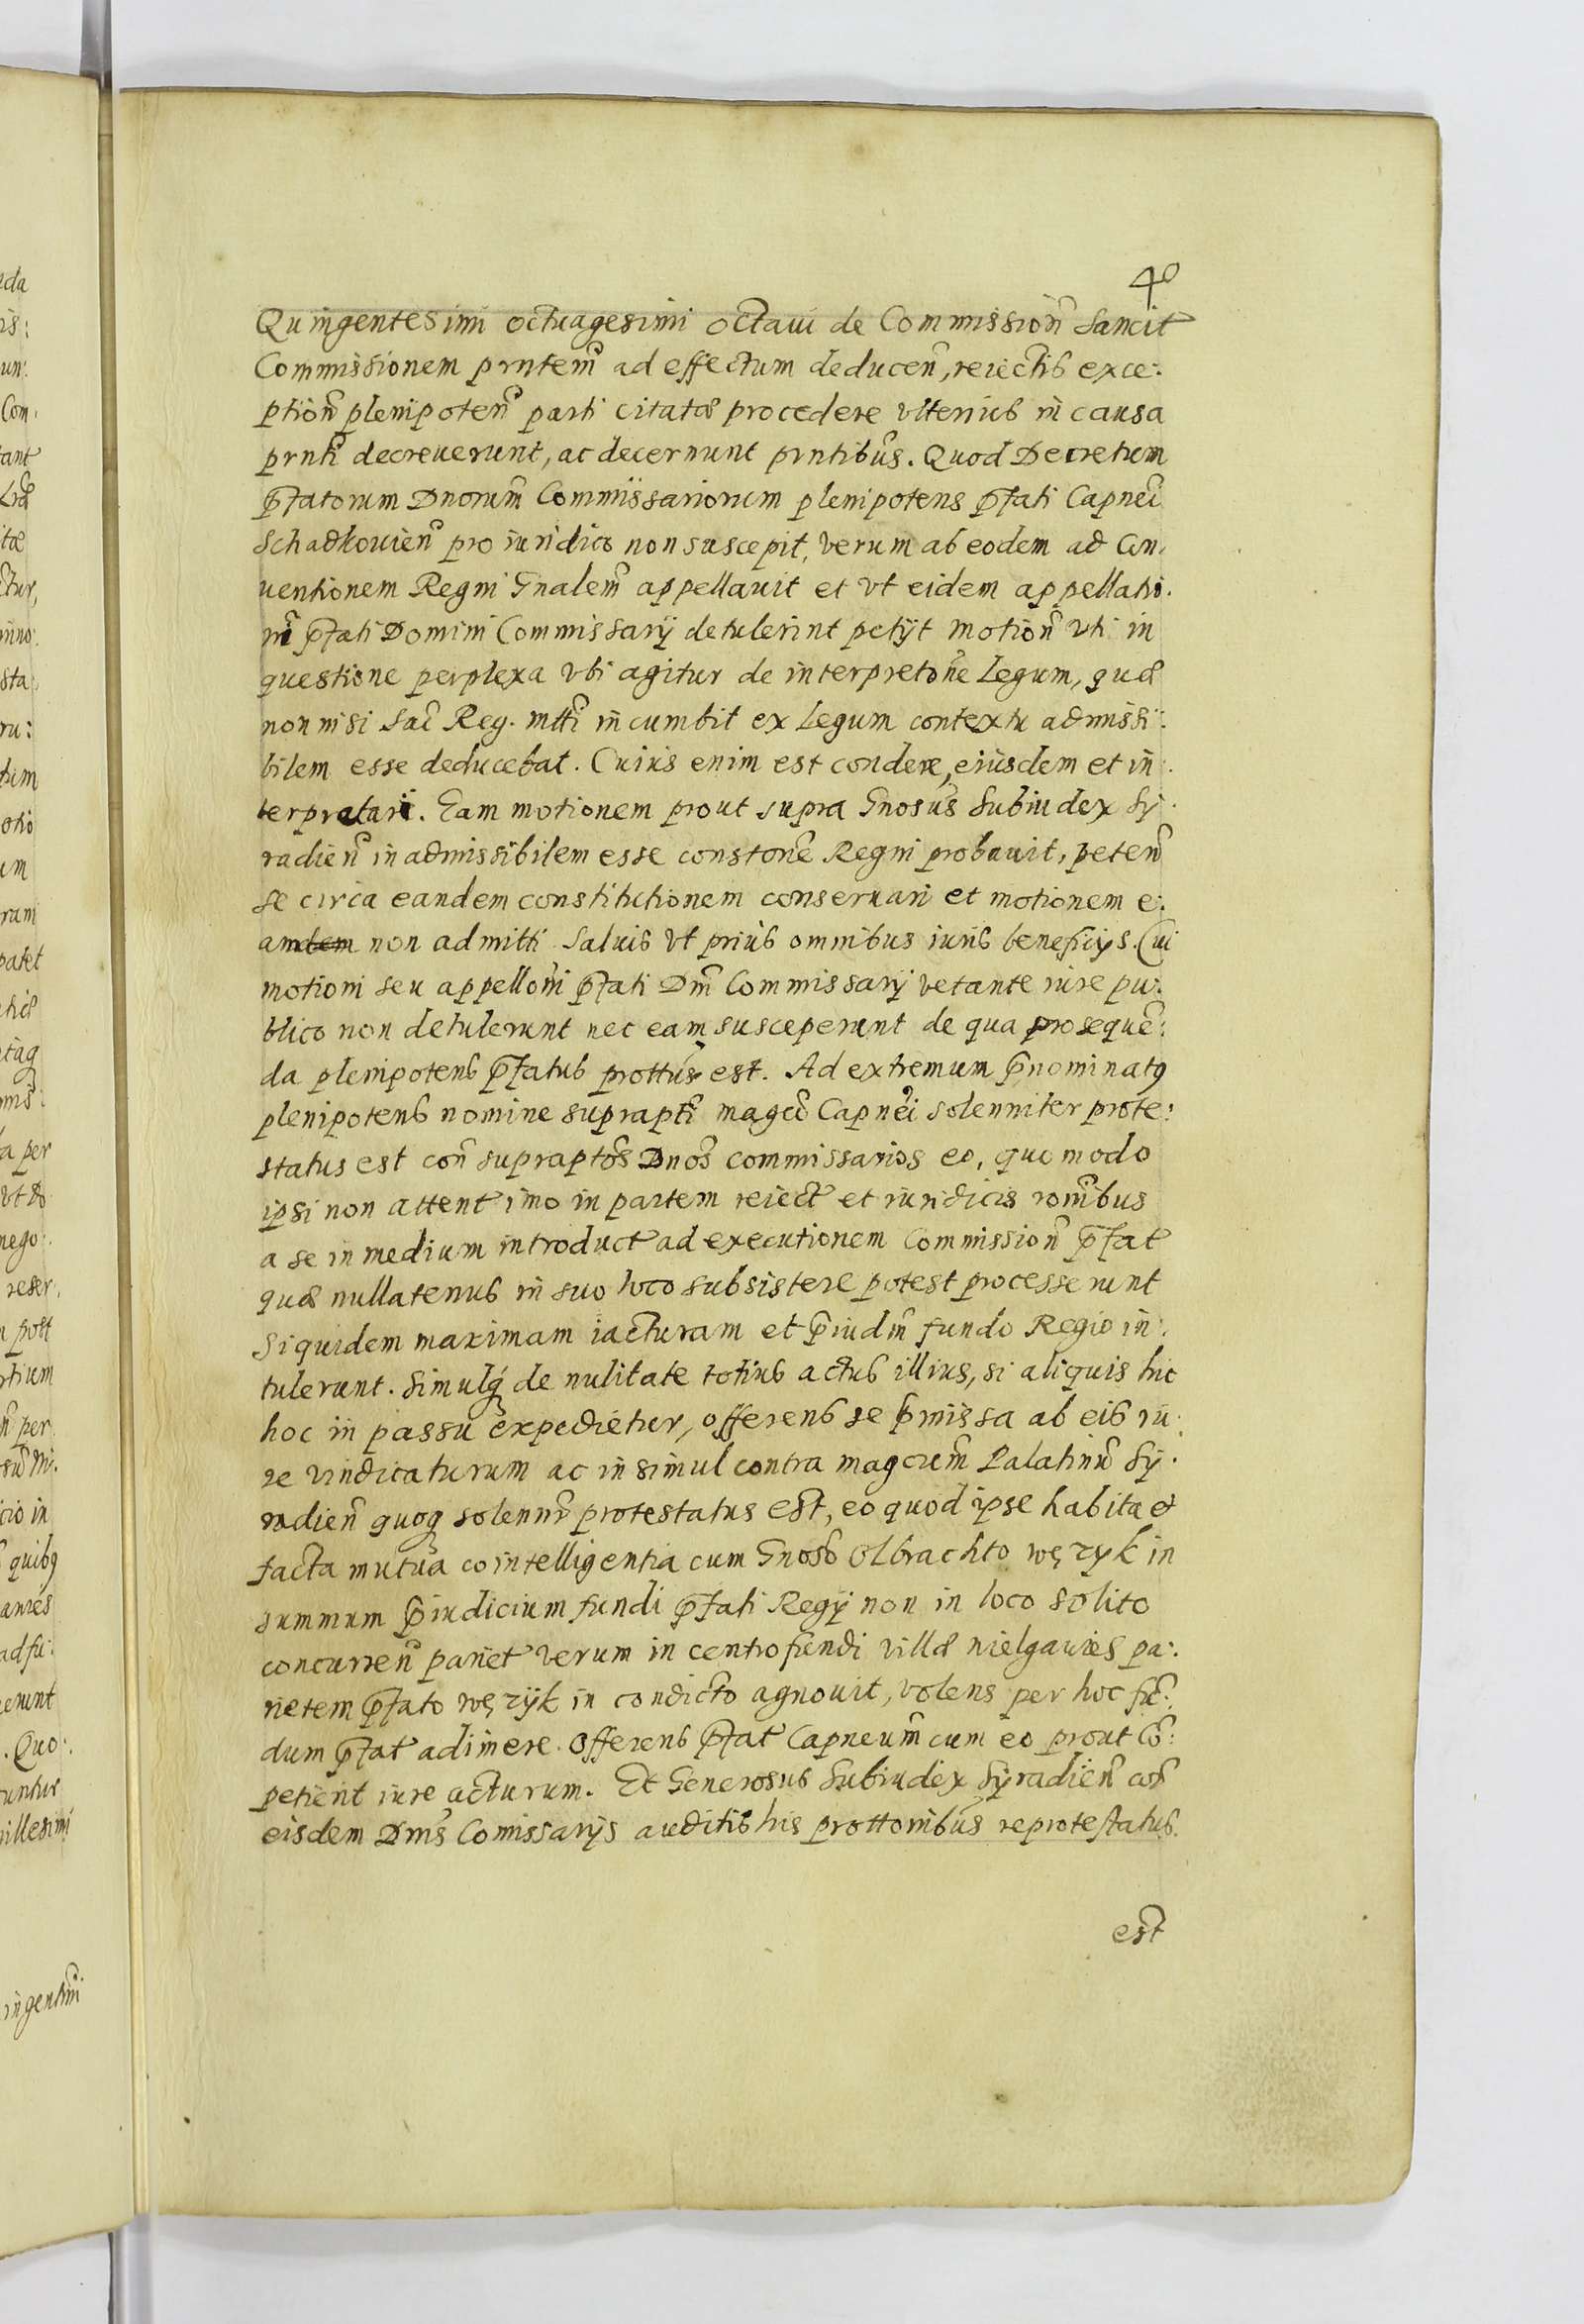 40
Quingentesimi octuagesimi octaui de Commissioñ Sancit
Commissionem prntem̃ ad effectum deduceñ, reiectis exce:
ptioñ plenipoteñ parti citatæ procedere vlterius in causa
prnti decreuerunt, ac decernunt prntibus. Quod Decretum
p̃fatorum Dnorum̃ Commissariorum plenipotens p̃fati Capnei
Schadkouieñ pro iuridico non suscepit, verum ab eodem ad Con:
uentionem Regni Gnalem̃ appellauit et vt eidem appellatio:
ni p̃fati Domini Commissarÿ detulerint petÿt motioñ vti in
questione perplexa vbi agitur de interpretoñe Legum, quæ
non nisi Sac̃ Reg. mtti incumbit ex Legum contextu admissi:
bilem esse deducebat. Cuius enim est condere, eiusdem et in:
terpretari. Eam motionem prout supra Gnosus Subiudex Sy:
radieñ inadmissibilem esse constone Regni probauit, peteñ
se circa eandem constitutionem conseruari et motionem e:
am non admitti saluis vt prius omnibus iuris beneficÿs. Cui
motioni seu appelloni p̃fati Dni Commissarÿ vetante iure pu:
blico non detulerunt nec eam susceperunt de qua prosequẽ:
da plenipotens p̃fatus prottus est. Ad extremum p̃nominatq
plenipotens nomine suprapti magci Capnei solenniter prote:
status est coñ supraptos Dnos commissarios eo, quo modo
ipsi non attent imo in partem reiect et iuridicis ronibus
a se in medium introduct ad executionem Commissioñ p̃fat
quæ nullatenus in suo loco subsistere potest processerunt
Siquidem maximam iacturam et p̃iudm̃ fundo Regio in:
tulerunt. Simulq́ de nulitate totius actus illius, si aliquis hic
hoc in passu expedietur, offerens se p̃missa ab eis iu:
re vindicaturum ac insimul contra magcum̃ Palatinũ Sy:
radieñ quoq solennr̃ protestatus est, eo quod ipse habita et
facta mutua cointelligentia cum Gnoso Olbrachto węzyk in
summum p̃iudicium fundi p̃fati Regÿ non in loco solito
concurreñ pariet verum in centro fundi villæ nielgawies pa:
rietem p̃fato węzÿk in condicto agnouit, volens per hoc fũ:
dum p̃fat adimere. Offerens p̃fat Capneum̃ cum eo prout cõ:
petierit iure acturum. Et Generosus Subiudex Sÿradieñ coñ
eisdem Dnis Comissarÿs auditis his prottonibus reprotestatus
est